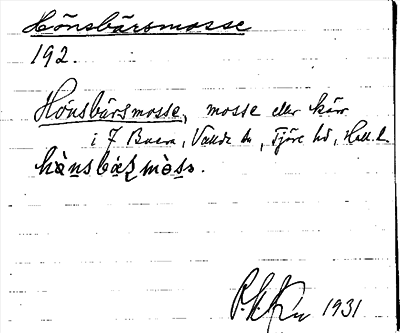 Hönsbärsmosse
192.
Hönsbärsmosse, mosse eller kärr
i 7 Buera, Valda sn, Fjäre hd, Hall. l.
hȯnsbæʀmȯsə.
1931